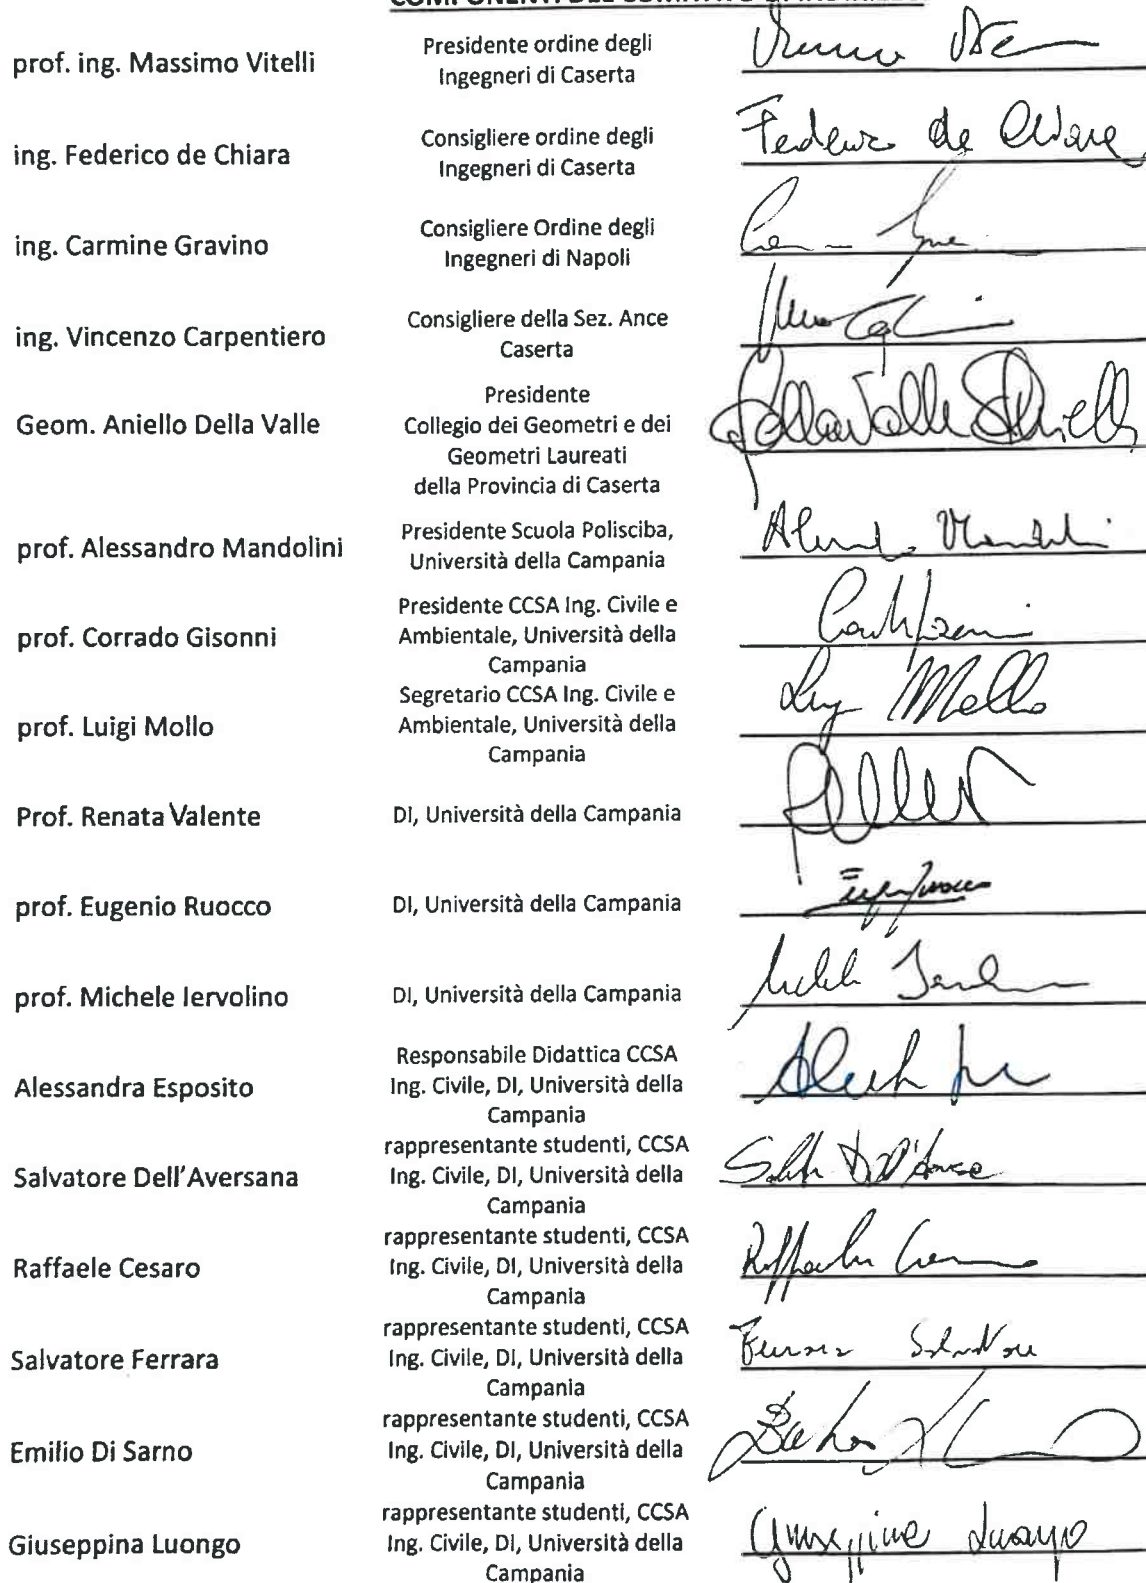 prof. ing. Massimo Vitelli
Presidente ordine degli
Ingegneri di Caserta
ing. Federico de Chiara
Consigliere ordine degli
Ingegneri di Caserta
Federico de Chiara
ing. Carmine Gravino
Consigliere Ordine degli
Ingegneri di Napoli
ing. Vincenzo Carpentiero
Consigliere della Sez. Ance
Caserta
Geom. Aniello Della Valle
Presidente
Collegio dei Geometri e dei
Geometri Laureati
della Provincia di Caserta
Della Valle Aniello
prof. Alessandro Mandolini
Presidente Scuola Polisciba,
Università della Campania
prof. Corrado Gisonni
Presidente CCSA Ing. Civile e
Ambientale, Università della
Campania
prof. Luigi Mollo
Segretario CCSA Ing. Civile e
Ambientale, Università della
Campania
Luigi Mollo
Prof. Renata Valente
DI, Università della Campania
prof. Eugenio Ruocco
DI, Università della Campania
prof. Michele Iervolino
DI, Università della Campania
Alessandra Esposito
Responsabile Didattica CCSA
Ing. Civile, DI, Università della
Campania
Salvatore Dell'Aversana
rappresentante studenti, CCSA
Ing. Civile, DI, Università della
Campania
Raffaele Cesaro
rappresentante studenti, CCSA
Ing. Civile, DI, Università della
Campania
Salvatore Ferrara
rappresentante studenti, CCSA
Ing. Civile, DI, Università della
Campania
Ferrara Salvatore
Emilio Di Sarno
rappresentante studenti, CCSA
Ing. Civile, DI, Università della
Campania
Giuseppina Luongo
rappresentante studenti, CCSA
Ing. Civile, DI, Università della
Campania
Giuseppina Luongo